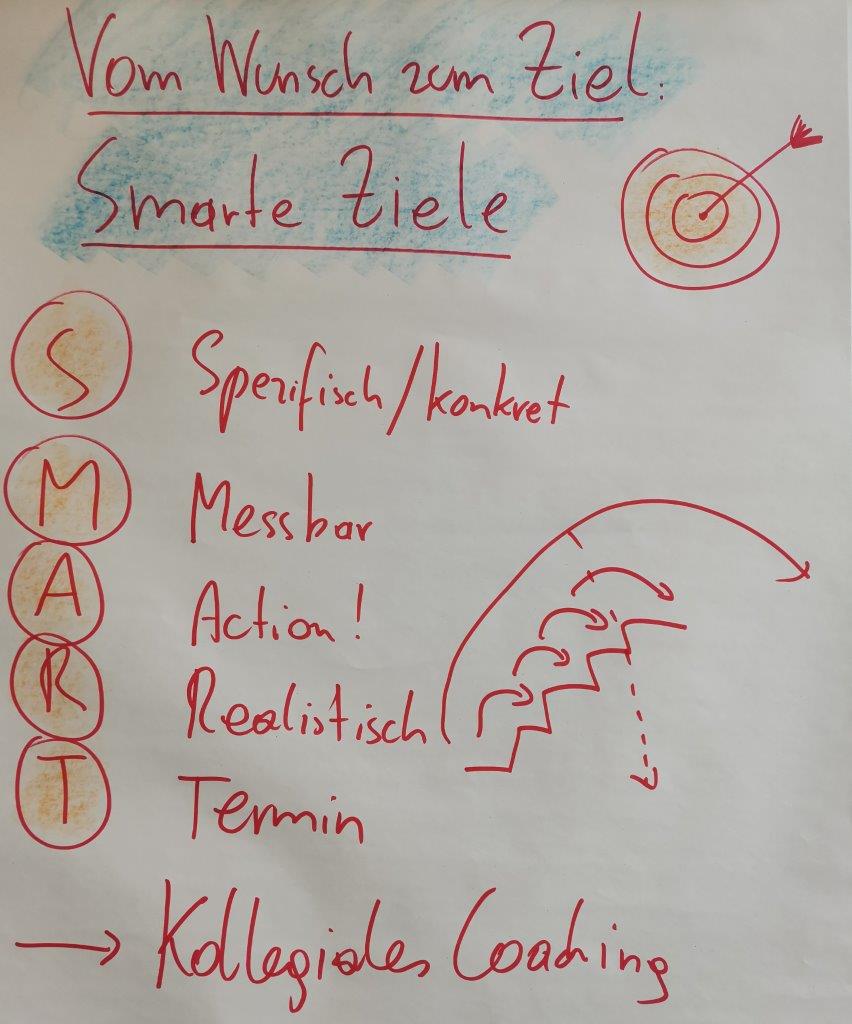 Vom Wunsch zum Ziel:
Smarte Ziele
S Spezifisch/konkret
M Messbar
A Action!
R Realistisch
T Termin
→ Kollegiales Coaching